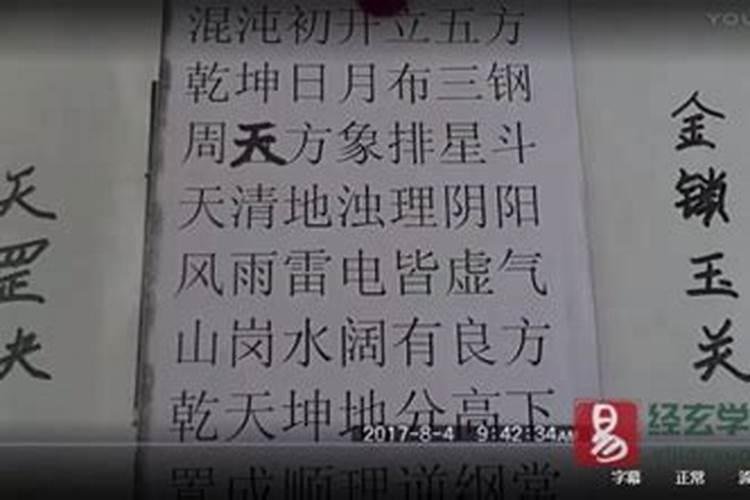 混沌初开立五方
乾坤日月布三钢
周天方象排星斗
天清地浊理阴阳
风雨雷电皆虚气
山岗水阔有良方
乾天坤地分高下
置成顺理道纲常
天罡决
金锁玉关
2017-8-4 9:42:34AM
易
经玄学
字幕
正常
YOU